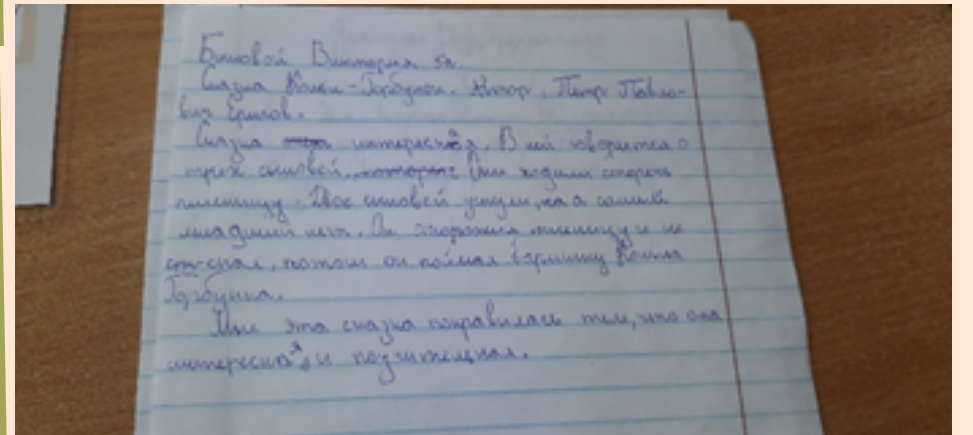 Виктория 5л.
Сказка Конёк-Горбунок. Автор. Пётр Павло-
вич Ершов.
Сказка интересная. В ней говорится о
трёх сыновей, которые Они ходили стереч
пшеницу. Двое сыновей уснули, а самый
младший нет. Он сторожил пшеницу и не
спал, потом он поймал Конька
Горбунка.
Мне эта сказка понравилась тем, что она
интересная и поучительная.